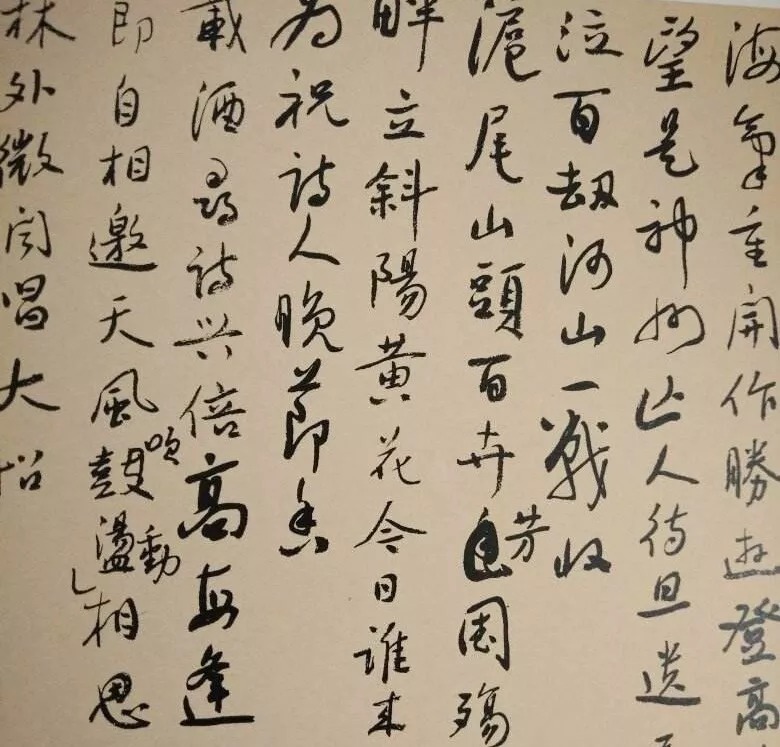 海氣重開作勝遊登高
望是神州近人待旦遺
泣百劫河山一戰收
滬尾山頭百卉芳國殤
畔立斜陽黃花今日誰來
為祝詩人晚節香
載酒尋詩興倍高每逢
即自相邀天風鼓吹盪動相思
林外微聞唱大